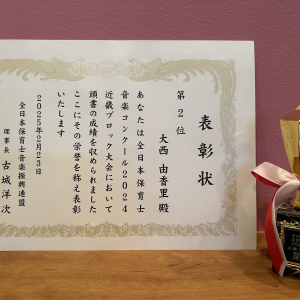 表彰状
第2位
大西 由香里 殿
あなたは全日本保育士
音楽コンクール2024
近畿ブロック大会において
頭書の成績を収められました
ここにその栄誉を称え表彰
いたします
2025年2月23日
全日本保育士音楽振興連盟
理事長 古城 洋次